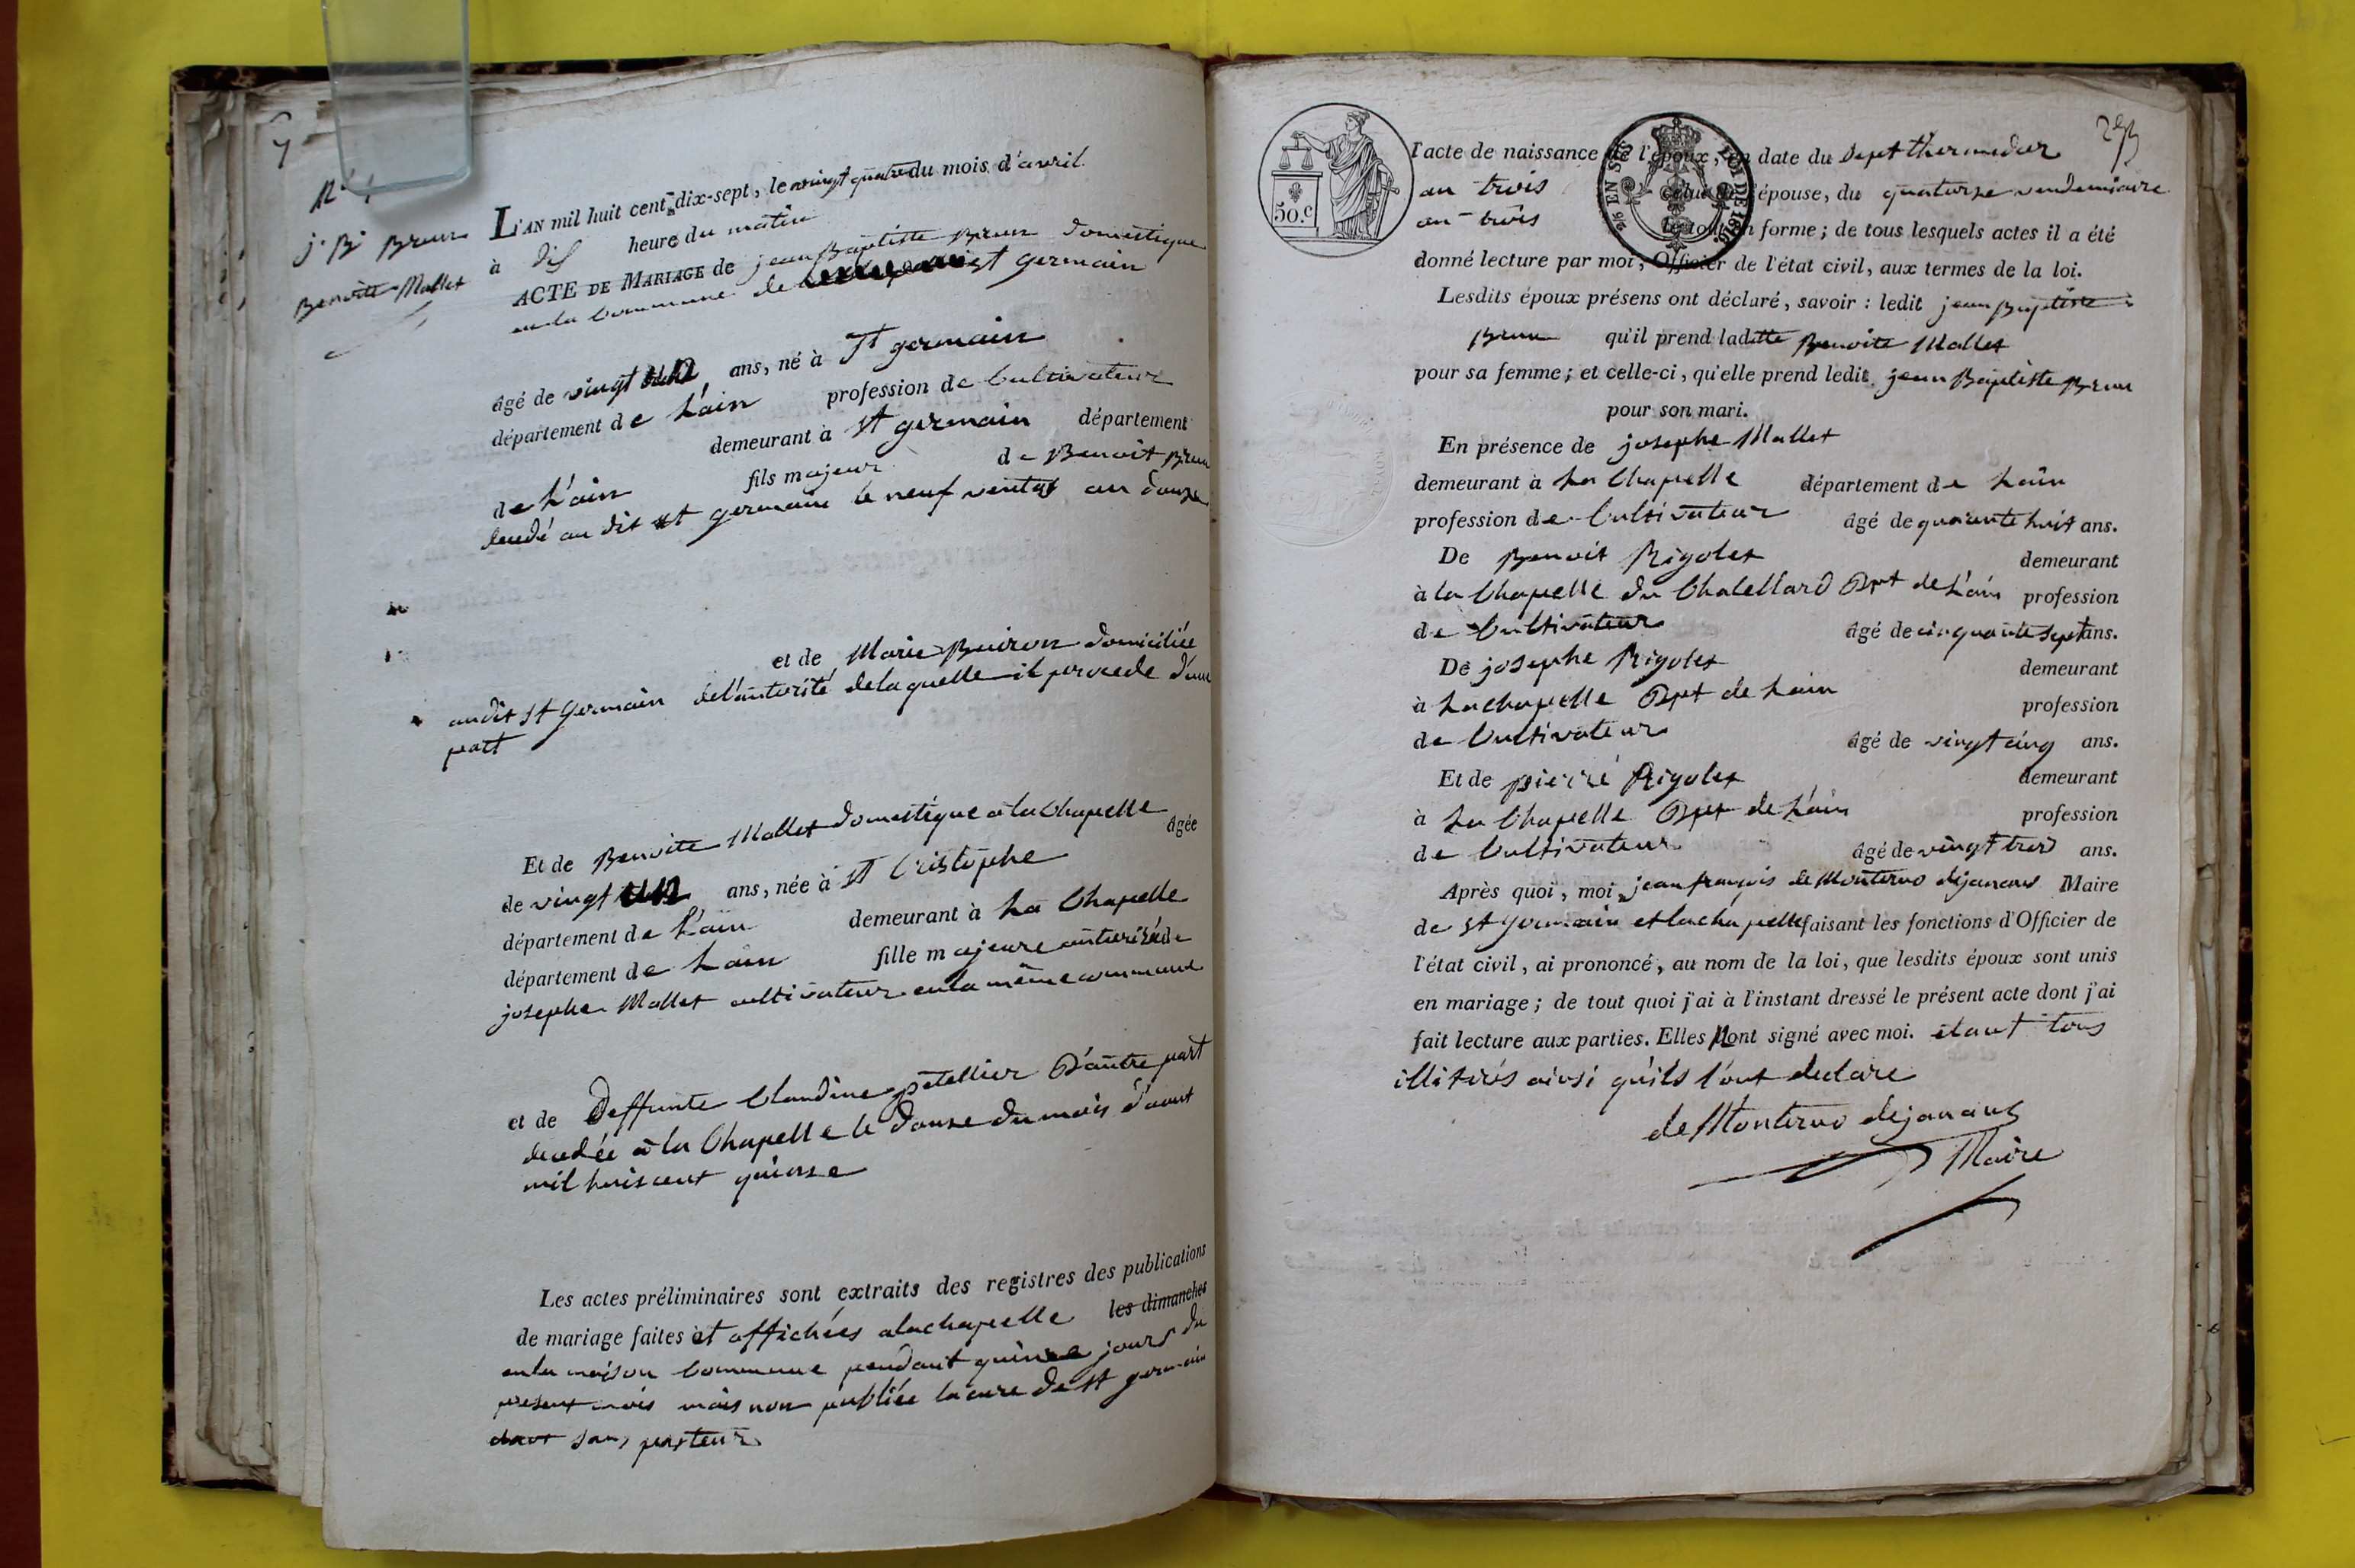 7
J. B. Brun
Benoite Mallet
L'AN mil huit cent dix-sept, le vingt quatre du mois d'avril
à dis heure du matin
ACTE DE MARIAGE de jean Baptiste Brun domestique
en la Commune de st germain
âgé de vingt un ans, né à St germain
département de L'ain profession de Cultivateur
demeurant à st germain département
de L'ain fils majeur de Benoit Brun
decedé au dit st germain le neuf ventos an douze
et de Marie Buiron domiciliée
audit st Germain de l'autorité de laquelle il procede d'une
part
Et de Benoite Mallet domestique a la Chapelle âgée
de vingt un ans, née à st Cristophe
département de L'ain demeurant à La Chapelle
département de Lain fille majeure autorisée de
josephe Mallet cultivateur en la même commune
et de Deffunte Claudine D'autre part
decedée a la Chapelle le douse du mois d'aout
mil huis cent quinse
Les actes préliminaires sont extraits des registres des publications
de mariage faites et affichées alachapelle les dimanches
en la maison Commune pendant quinze jours du
present mois mais non publiée la cure de st germain
sans pasteur
253
50.c
l'acte de naissance de l'époux, en date du Sept thermidor
an trois celui de l'épouse, du quatorse vendemiaire
an trois le tout en forme ; de tous lesquels actes il a été
donné lecture par moi, Officier de l'état civil, aux termes de la loi.
Lesdits époux présens ont déclaré, savoir : ledit jean Baptiste
Brun qu'il prend laditte Benoite Mallet
pour sa femme ; et celle-ci, qu'elle prend ledit jean Baptiste Brun
pour son mari.
En présence de josephe Mallet
demeurant à La Chapelle département de Lain
profession de Cultivateur âgé de quarante huit ans.
De Benoit Rigolet demeurant
à la Chapelle du Chatellard Dpt de L'ain profession
de Cultivateur âgé de cinquante sept ans.
De josephe Rigolet demeurant
à Lachapelle Dpt de Lain profession
de Cultivateur âgé de vingt cinq ans.
Et de pierre Rigolet demeurant
à La Chapelle Dpt de L'ain profession
de Cultivateur âgé de vingt trois ans.
Après quoi, moi jean françois de Monterno dejanans Maire
de st germain et lachapelle faisant les fonctions d'Officier de
l'état civil, ai prononcé, au nom de la loi, que lesdits époux sont unis
en mariage ; de tout quoi j'ai à l'instant dressé le présent acte dont j'ai
fait lecture aux parties. Elles Nont signé avec moi. étant tous
illitirés ainsi qu'ils l'ont declare
de Monterno dejanans
Maire